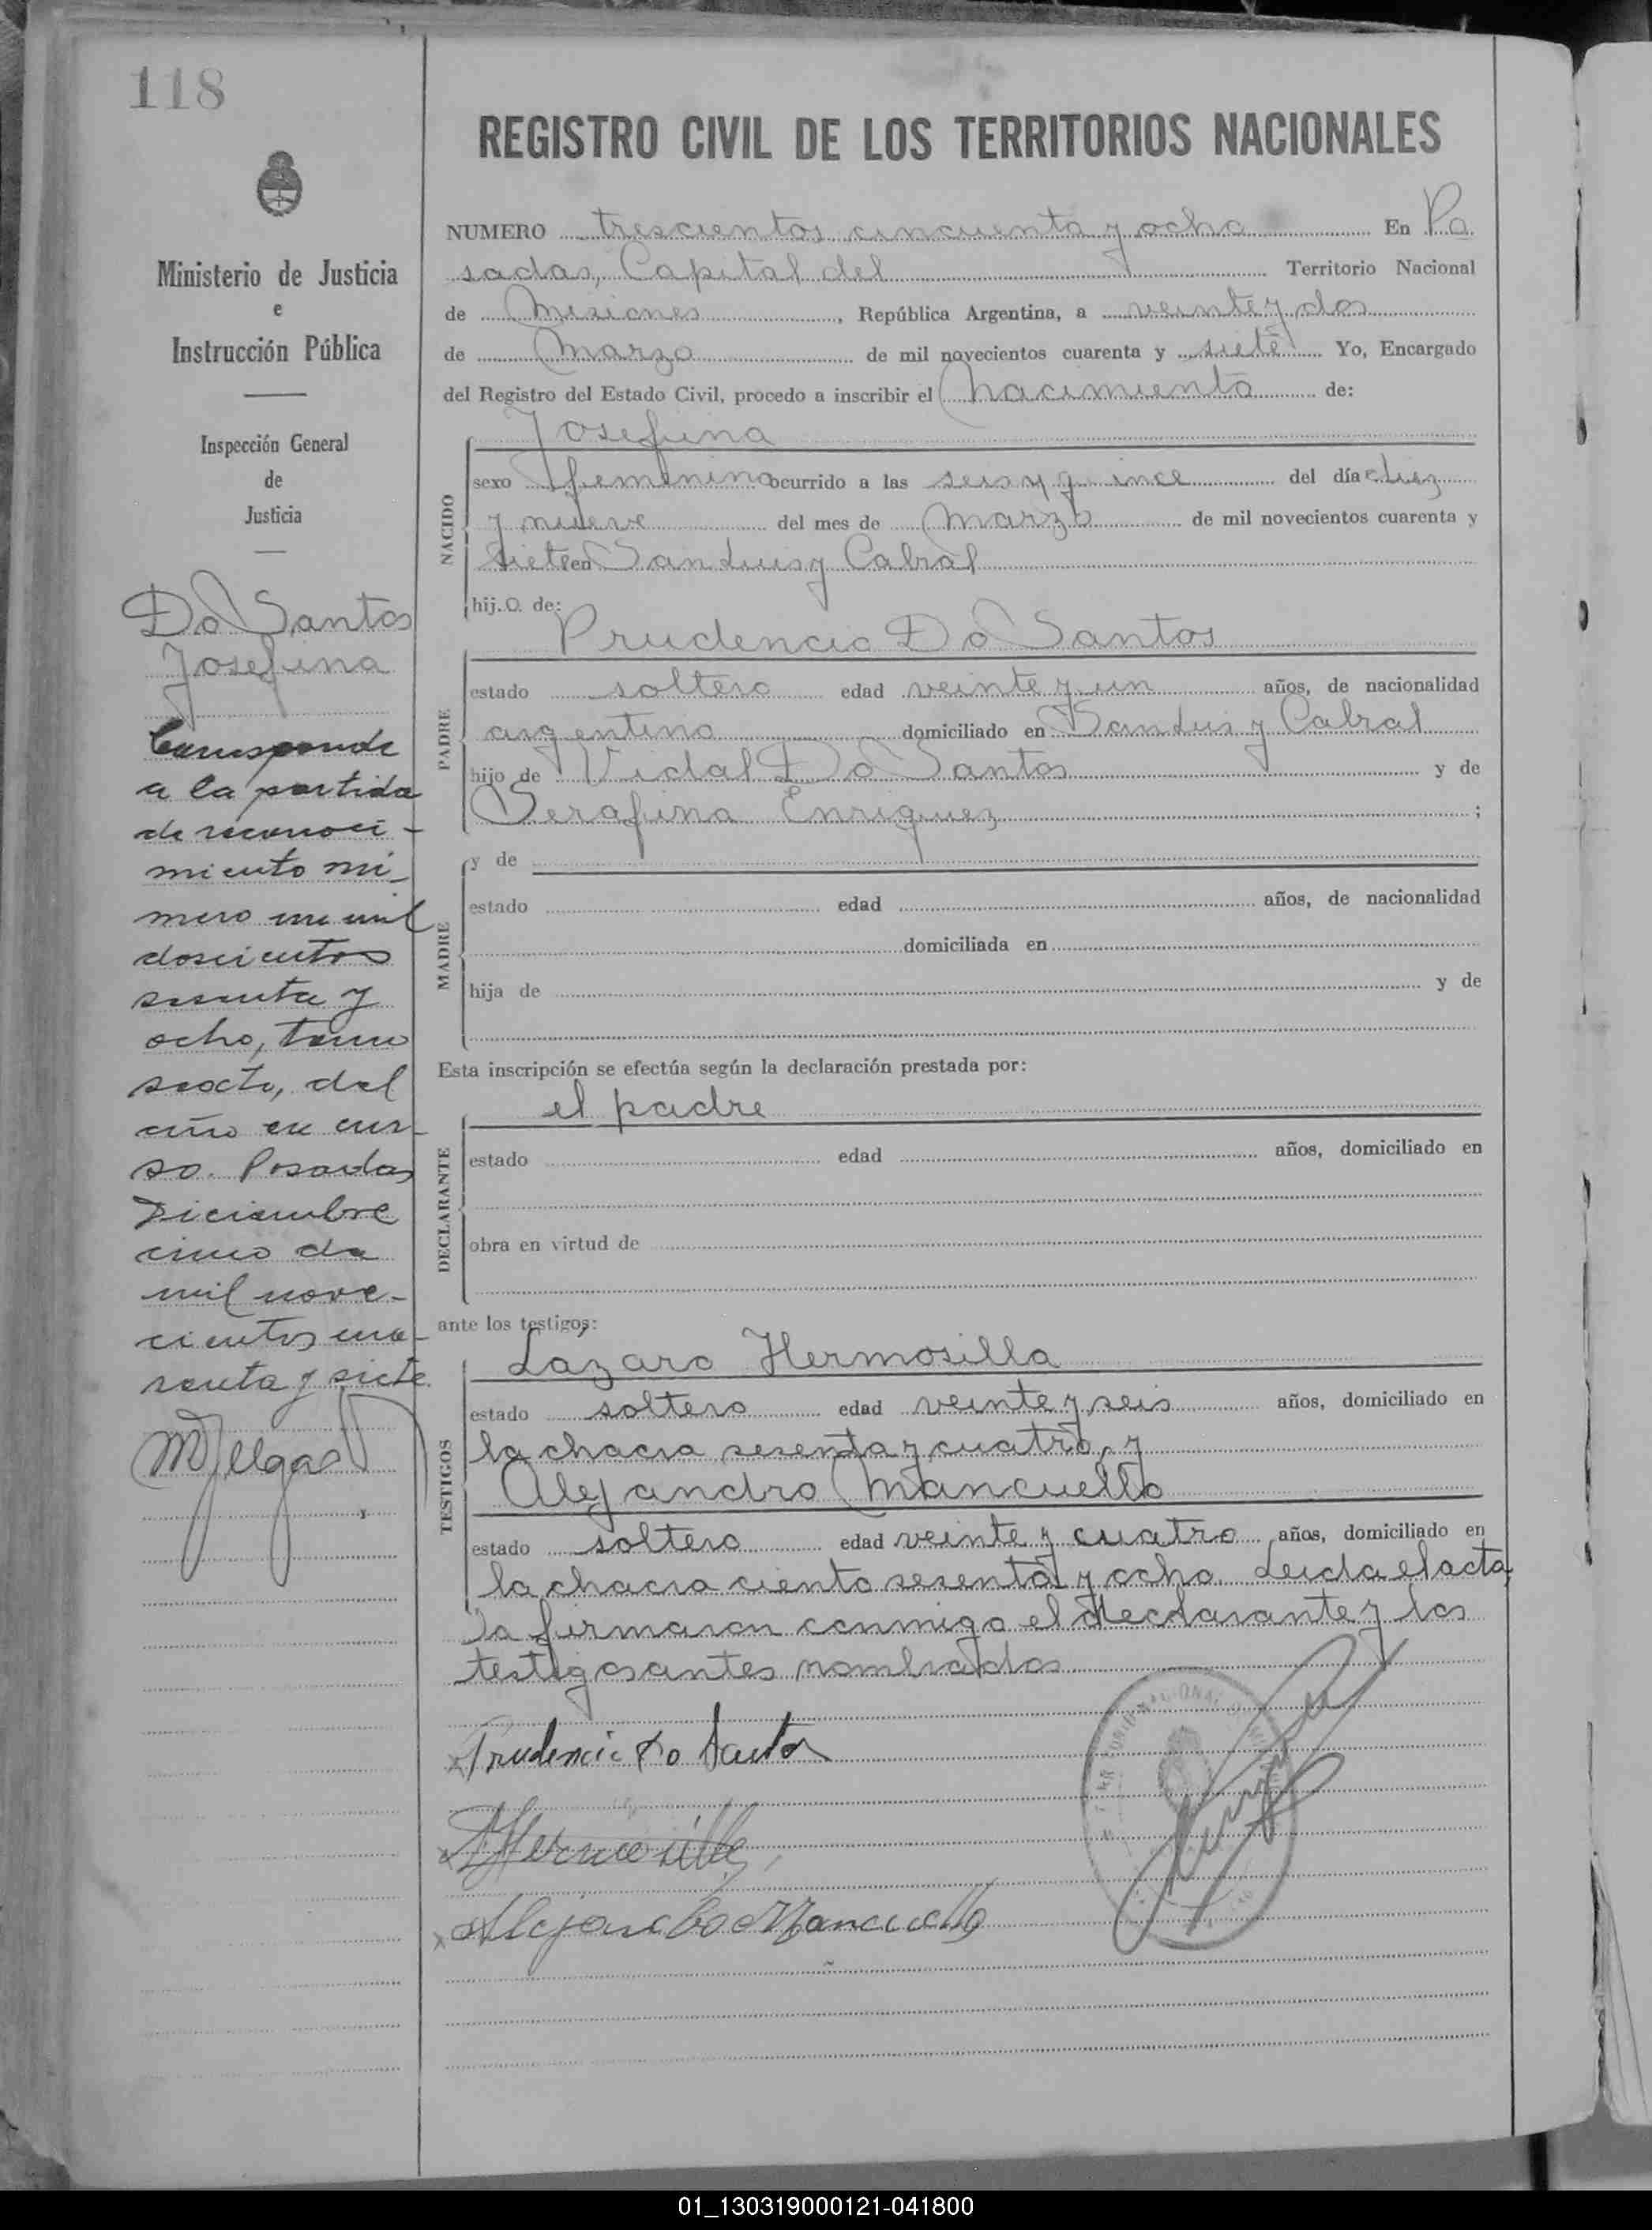 118
Ministerio de Justicia
e
Instrucción Pública
Inspección General
de
Justicia
Do Santos
Josefina
Corresponde
a la partida
de reconoci-
miento nú-
mero un mil
doscientos
sesenta y
ocho, tomo
sexto, del
año en cur-
so. Posadas
Diciembre
cinco de
mil nove-
cientos cua-
renta y siete.
REGISTRO CIVIL DE LOS TERRITORIOS NACIONALES
NUMERO trescientos cincuenta y ocho En Po
sadas, Capital del Territorio Nacional
de Misiones, República Argentina, a veinte y dos
de Marzo de mil novecientos cuarenta y siete Yo, Encargado
del Registro del Estado Civil, procedo a inscribir el nacimiento de:
NACIDO
Josefina
sexo femenino ocurrido a las seis y quince del día diez
y nueve del mes de Marzo de mil novecientos cuarenta y
siete en San Luis y Cabral
hij.o. de:
PADRE
Prudencio Do Santos
estado soltero edad veinte y un años, de nacionalidad
argentino domiciliado en San Luis y Cabral
hijo de Vidal Do Santos y de
Serafina Enriquez ;
MADRE
y de
estado edad años, de nacionalidad
domiciliada en
hija de y de
Esta inscripción se efectúa según la declaración prestada por:
DECLARANTE
el padre
estado edad años, domiciliado en
obra en virtud de
ante los testigos:
TESTIGOS
Lazaro Hermosilla
estado soltero edad veinte y seis años, domiciliado en
la chacra sesenta y cuatro, y
Alejandro Mancuello
estado soltero edad veinte y cuatro años, domiciliado en
la chacra ciento sesenta y ocho. Leida el acta,
la firmaron conmigo el declarante y los
testigos antes nombrados
Prudencio Do Santos
Hermosilla
Alejandro Mancuello
01_130319000121-041800